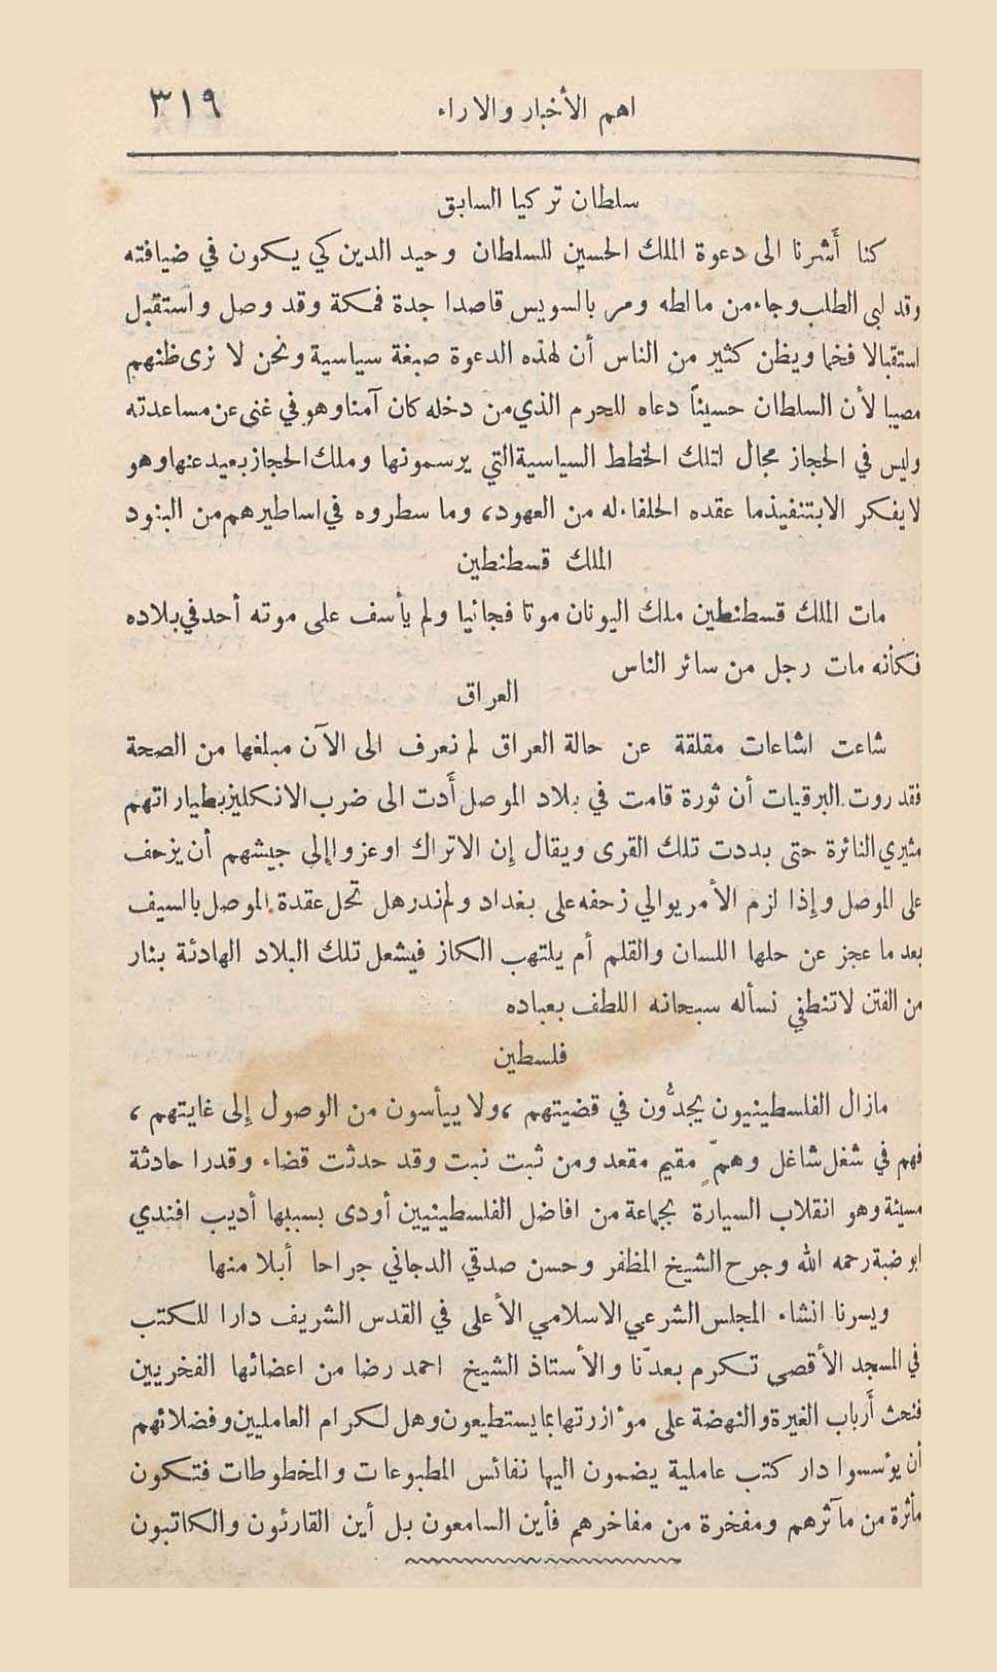 اهم الأخبار والاراء ٣١٩
سلطان تركيا السابق
كنا أشرنا الى دعوة الملك الحسين للسلطان وحيد الدين كي يكون في ضيافته
وقد لبى الطلب وجاء من مالطه ومر بالسويس قاصدا جدة فمكة وقد وصل واستقبل
استقبالا فخما ويظن كثير من الناس أن لهذه الدعوة صبغة سياسية ونحن لا نرى ظنهم
مصيبا لأن السلطان حسيناً دعاه للحرم الذي من دخله كان آمنا وهو في غنى عن مساعدته
وليس في الحجاز مجال لتلك الخطط السياسية التي يرسمونها وملك الحجاز بعيد عنها وهو
لا يفكر الا بتنفيذ ما عقده الحلفاء له من العهود، وما سطروه في اساطيرهم من البنود
الملك قسطنطين
مات الملك قسطنطين ملك اليونان موتا فجائيا ولم يأسف على موته أحد في بلاده
فكأنه مات رجل من سائر الناس
العراق
شاعت اشاعات مقلقة عن حالة العراق لم نعرف الى الآن مبلغها من الصحة
فقد روت البرقيات أن ثورة قامت في بلاد الموصل أدت الى ضرب الانكليز بطياراتهم
مثيري النائرة حتى بددت تلك القرى ويقال إن الاتراك اوعزوا إلى جيشهم أن يزحف
على الموصل وإذا لزم الأمر يوالي زحفه على بغداد ولم ندر هل تحل عقدة الموصل بالسيف
بعد ما عجز عن حلها اللسان والقلم أم يلتهب الكاز فيشعل تلك البلاد الهادئة بنار
من الفتن لا تنطفي نسأله سبحانه اللطف بعباده
فلسطين
مازال الفلسطينيون يجدُّون في قضيتهم، ولا ييأسون من الوصول إلى غايتهم،
فهم في شغل شاغل وهمّ مقيم مقعد ومن ثبت نبت وقد حدثت قضاء وقدرا حادثة
مسيئة وهو انقلاب السيارة بجماعة من افاضل الفلسطينيين أودى بسببها أديب افندي
ابو ضبة رحمه الله وجرح الشيخ المظفر وحسن صدقي الدجاني جراحا أبلا منها
ويسرنا انشاء المجلس الشرعي الاسلامي الأعلى في القدس الشريف دارا للكتب
في المسجد الأقصى تكرم بعدّنا والأستاذ الشيخ احمد رضا من اعضائها الفخريين
فنحث أرباب الغيرة والنهضة على مؤازرتها بما يستطيعون وهل لكرام العامليين وفضلائهم
أن يؤسسوا دار كتب عاملية يضمون اليها نفائس المطبوعات والمخطوطات فتكون
مأثرة من مآثرهم ومفخرة من مفاخرهم فأين السامعون بل أين القارئون والكاتبون